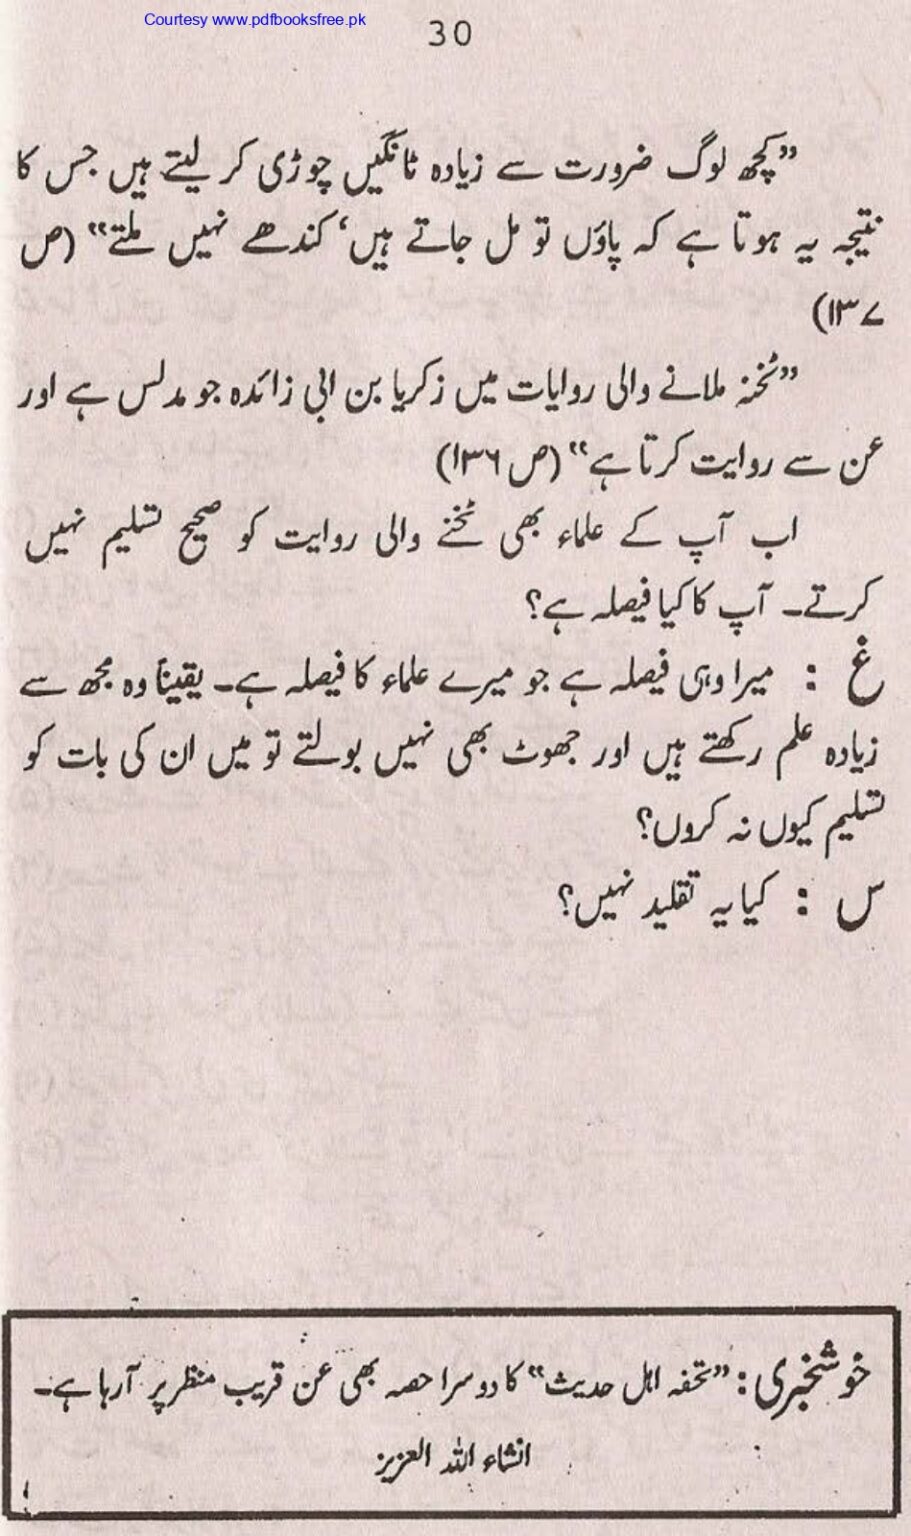 Courtesy www.pdfbooksfree.pk
30
”کچھ لوگ ضرورت سے زیادہ ٹانگیں چوڑی کر لیتے ہیں جس کا
نتیجہ یہ ہوتا ہے کہ پاؤں تو مل جاتے ہیں‘ کندھے نہیں ملتے“ (ص
۱۳۷)
”ٹخنہ ملانے والی روایات میں زکریا بن ابی زائدہ جو مدلس ہے اور
عن سے روایت کرتا ہے“ (ص ۱۳۶)
اب آپ کے علماء بھی ٹخنے والی روایت کو صحیح تسلیم نہیں
کرتے۔ آپ کا کیا فیصلہ ہے؟
غ : میرا وہی فیصلہ ہے جو میرے علماء کا فیصلہ ہے۔ یقیناً وہ مجھ سے
زیادہ علم رکھتے ہیں اور جھوٹ بھی نہیں بولتے تو میں ان کی بات کو
تسلیم کیوں نہ کروں؟
س : کیا یہ تقلید نہیں؟
خوشخبری : ”تحفہ اہل حدیث“ کا دوسرا حصہ بھی عن قریب منظر پر آرہا ہے۔
انشاء اللہ العزیز